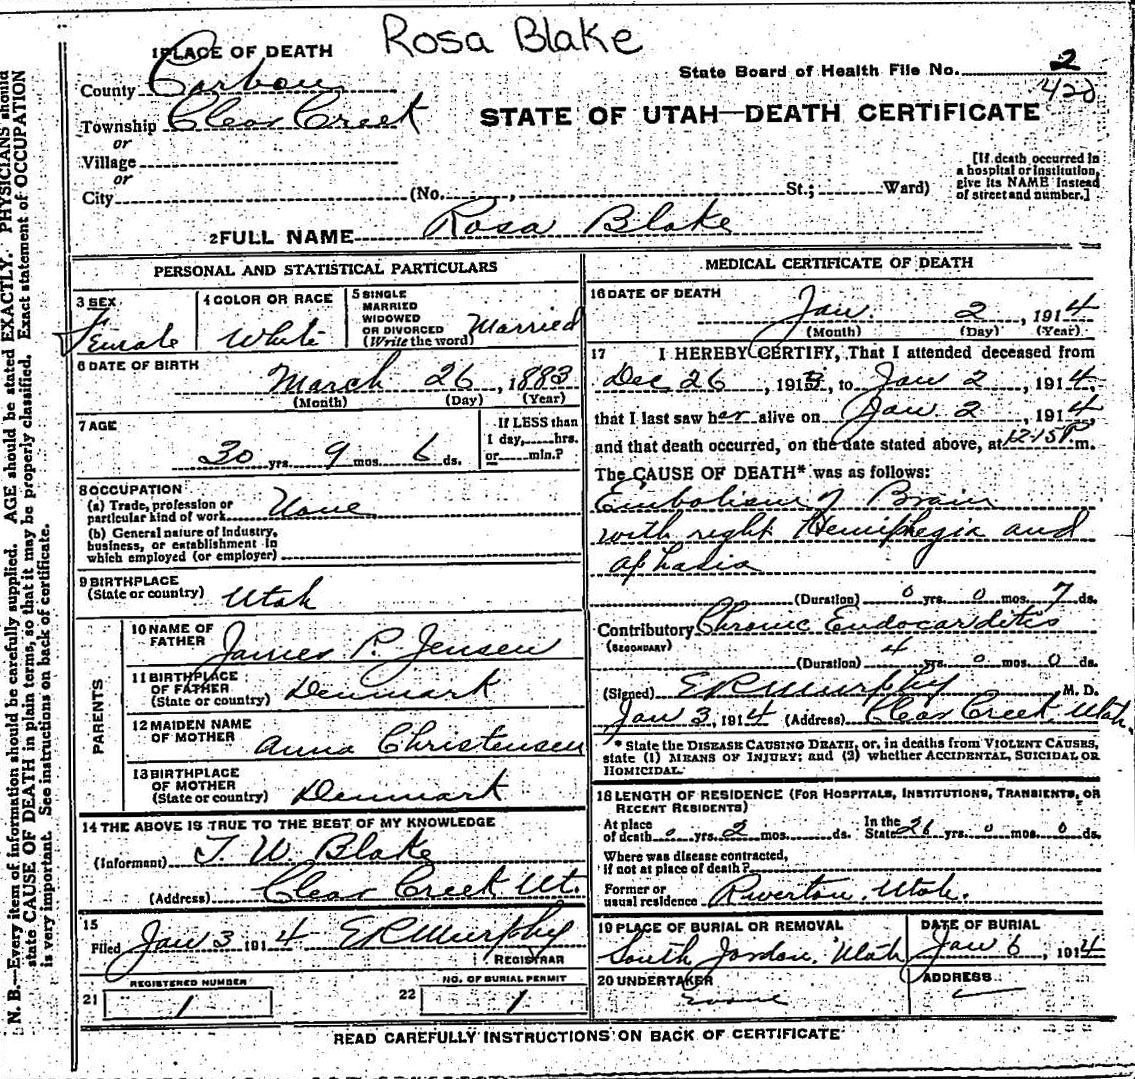 Rosa Blake
1 PLACE OF DEATH
State Board of Health File No. 2
County Carbon
Township Clear Creek
STATE OF UTAH—DEATH CERTIFICATE
or
Village
or
City (No. , St.; Ward)
[If death occurred in
a hospital or institution,
give its NAME instead
of street and number.]
2 FULL NAME Rosa Blake
PERSONAL AND STATISTICAL PARTICULARS
3 SEX
Female
4 COLOR OR RACE
White
5 SINGLE
MARRIED
WIDOWED
OR DIVORCED
(Write the word) Married
6 DATE OF BIRTH
March 26, 1883
(Month) (Day) (Year)
7 AGE
30 yrs. 9 mos. 6 ds.
If LESS than
1 day, hrs.
or min.?
8 OCCUPATION
(a) Trade, profession or
particular kind of work None
(b) General nature of Industry,
business, or establishment in
which employed (or employer)
9 BIRTHPLACE
(State or country) Utah
PARENTS
10 NAME OF
FATHER James P. Jensen
11 BIRTHPLACE
OF FATHER
(State or country) Denmark
12 MAIDEN NAME
OF MOTHER Anna Christensen
13 BIRTHPLACE
OF MOTHER
(State or country) Denmark
14 THE ABOVE IS TRUE TO THE BEST OF MY KNOWLEDGE
(Informant) T. W. Blake
(Address) Clear Creek Ut.
15
Filed Jan 3 1914 ER Murphy
REGISTRAR
REGISTERED NUMBER
21 1
NO. OF BURIAL PERMIT
22 1
MEDICAL CERTIFICATE OF DEATH
16 DATE OF DEATH
Jan. 2, 1914
(Month) (Day) (Year)
17 I HEREBY CERTIFY, That I attended deceased from
Dec 26, 1913, to Jan 2, 1914,
that I last saw her alive on Jan. 2, 1914
and that death occurred, on the date stated above, at 12:15 P.m.
The CAUSE OF DEATH* was as follows:
Embolism of Brain
with right Hemiphegia and
aphasia
(Duration) 0 yrs. 0 mos. 7 ds.
Contributory Chronic Endocarditis
(SECONDARY)
(Duration) 4 yrs. 0 mos. 0 ds.
(Signed) ER Murphy M. D.
Jan 3, 1914 (Address) Clear Creek, Utah.
* State the DISEASE CAUSING DEATH, or, in deaths from VIOLENT CAUSES,
state (1) MEANS OF INJURY; and (2) whether ACCIDENTAL, SUICIDAL OR
HOMICIDAL.
18 LENGTH OF RESIDENCE (FOR HOSPITALS, INSTITUTIONS, TRANSIENTS, OR
RECENT RESIDENTS)
At place
of death 0 yrs. 2 mos. ds.
In the
State yrs. 0 mos. 0 ds.
Where was disease contracted,
if not at place of death?
Former or
usual residence Riverton, Utah.
19 PLACE OF BURIAL OR REMOVAL
South Jordan, Utah
DATE OF BURIAL
Jan 6, 1914
20 UNDERTAKER
ADDRESS
READ CAREFULLY INSTRUCTIONS ON BACK OF CERTIFICATE
N. B.—Every item of information should be carefully supplied. AGE should be stated EXACTLY. PHYSICIANS should
state CAUSE OF DEATH in plain terms, so that it may be properly classified. Exact statement of OCCUPATION
is very important. See instructions on back of certificate.